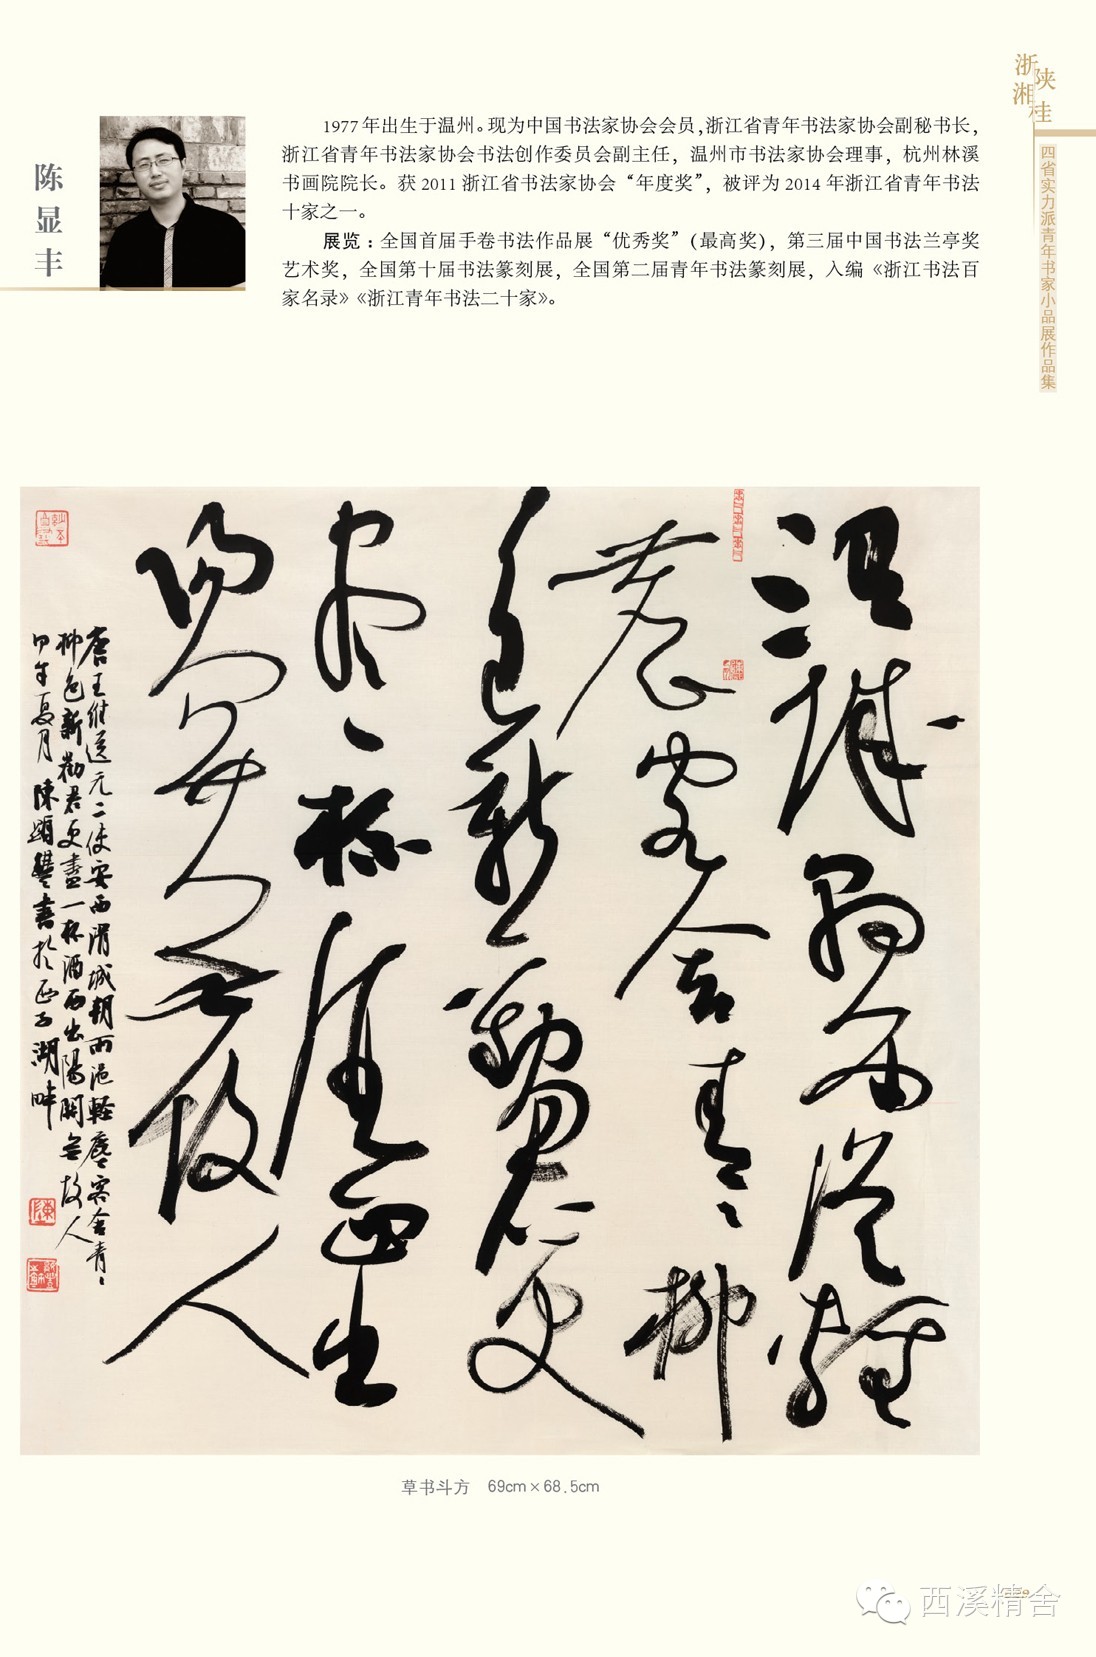 浙陕
湘桂
四省实力派青年书家小品展作品集
陈显丰
1977年出生于温州。现为中国书法家协会会员,浙江省青年书法家协会副秘书长,
浙江省青年书法家协会书法创作委员会副主任，温州市书法家协会理事，杭州林溪
书画院院长。获2011浙江省书法家协会“年度奖”，被评为2014年浙江省青年书法
十家之一。
展览：全国首届手卷书法作品展“优秀奖”(最高奖)，第三届中国书法兰亭奖
艺术奖，全国第十届书法篆刻展，全国第二届青年书法篆刻展，入编《浙江书法百
家名录》《浙江青年书法二十家》。
渭城朝雨浥輕
塵客舍青〻柳
色新勸君更
盡一杯酒西出
陽關无故人
唐王維送元二使安西渭城朝雨浥輕塵客舍青〻
柳色新勸君更盡一杯酒西出陽關無故人
甲午夏月陳顯豐書於西子湖畔
草书斗方 69cm×68.5cm
西溪精舍